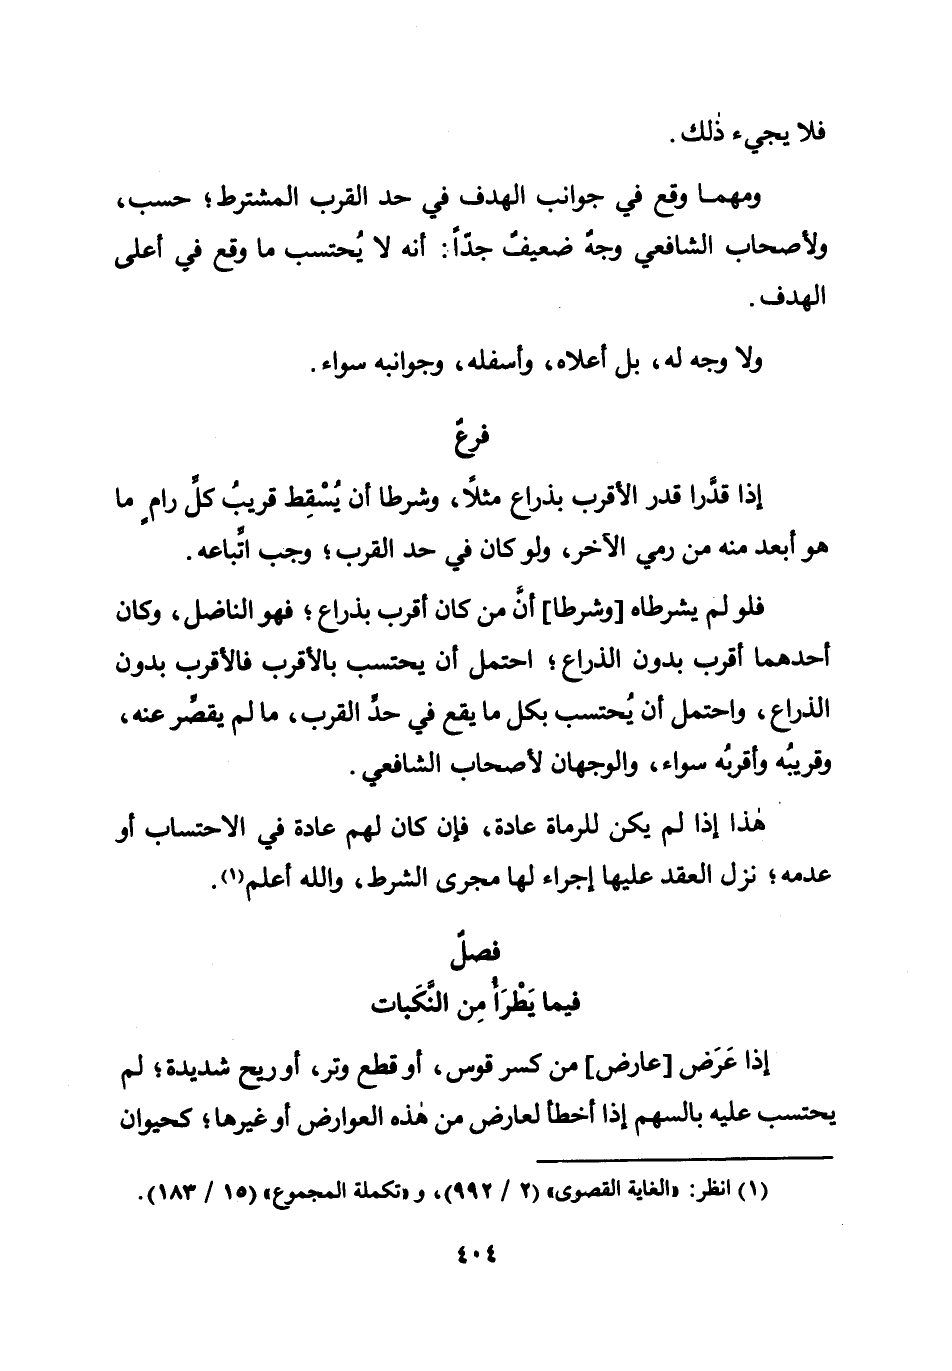 فلا يجيء ذٰلك.
ومهما وقع في جوانب الهدف في حد القرب المشترط؛ حسب،
ولأصحاب الشافعي وجهٌ ضعيفٌ جدّاً: أنه لا يُحتسب ما وقع في أعلى
الهدف.
ولا وجه له، بل أعلاه، وأسفله، وجوانبه سواء.
فرعٌ
إذا قدَّرا قدر الأقرب بذراع مثلًا، وشرطا أن يُسْقِط قريبُ كلِّ رامٍ ما
هو أبعد منه من رمي الآخر، ولو كان في حد القرب؛ وجب اتِّباعه.
فلو لم يشرطاه [وشرطا] أنَّ من كان أقرب بذراع؛ فهو الناضل، وكان
أحدهما أقرب بدون الذراع؛ احتمل أن يحتسب بالأقرب فالأقرب بدون
الذراع، واحتمل أن يُحتسب بكل ما يقع في حدِّ القرب، ما لم يقصِّر عنه،
وقريبُه وأقربُه سواء، والوجهان لأصحاب الشافعي.
هٰذا إذا لم يكن للرماة عادة، فإن كان لهم عادة في الاحتساب أو
عدمه؛ نزل العقد عليها إجراء لها مجرى الشرط، والله أعلم(١).
فصلٌ
فيما يَطْرَأُ مِن النَّكَبات
إذا عَرَض [عارض] من كسر قوس، أو قطع وتر، أو ريح شديدة؛ لم
يحتسب عليه بالسهم إذا أخطأ لعارض من هٰذه العوارض أو غيرها؛ كحيوان
(١) انظر: «الغاية القصوى» (٢ / ٩٩٢)، و «تكملة المجموع» (١٥ / ١٨٣).
٤٠٤